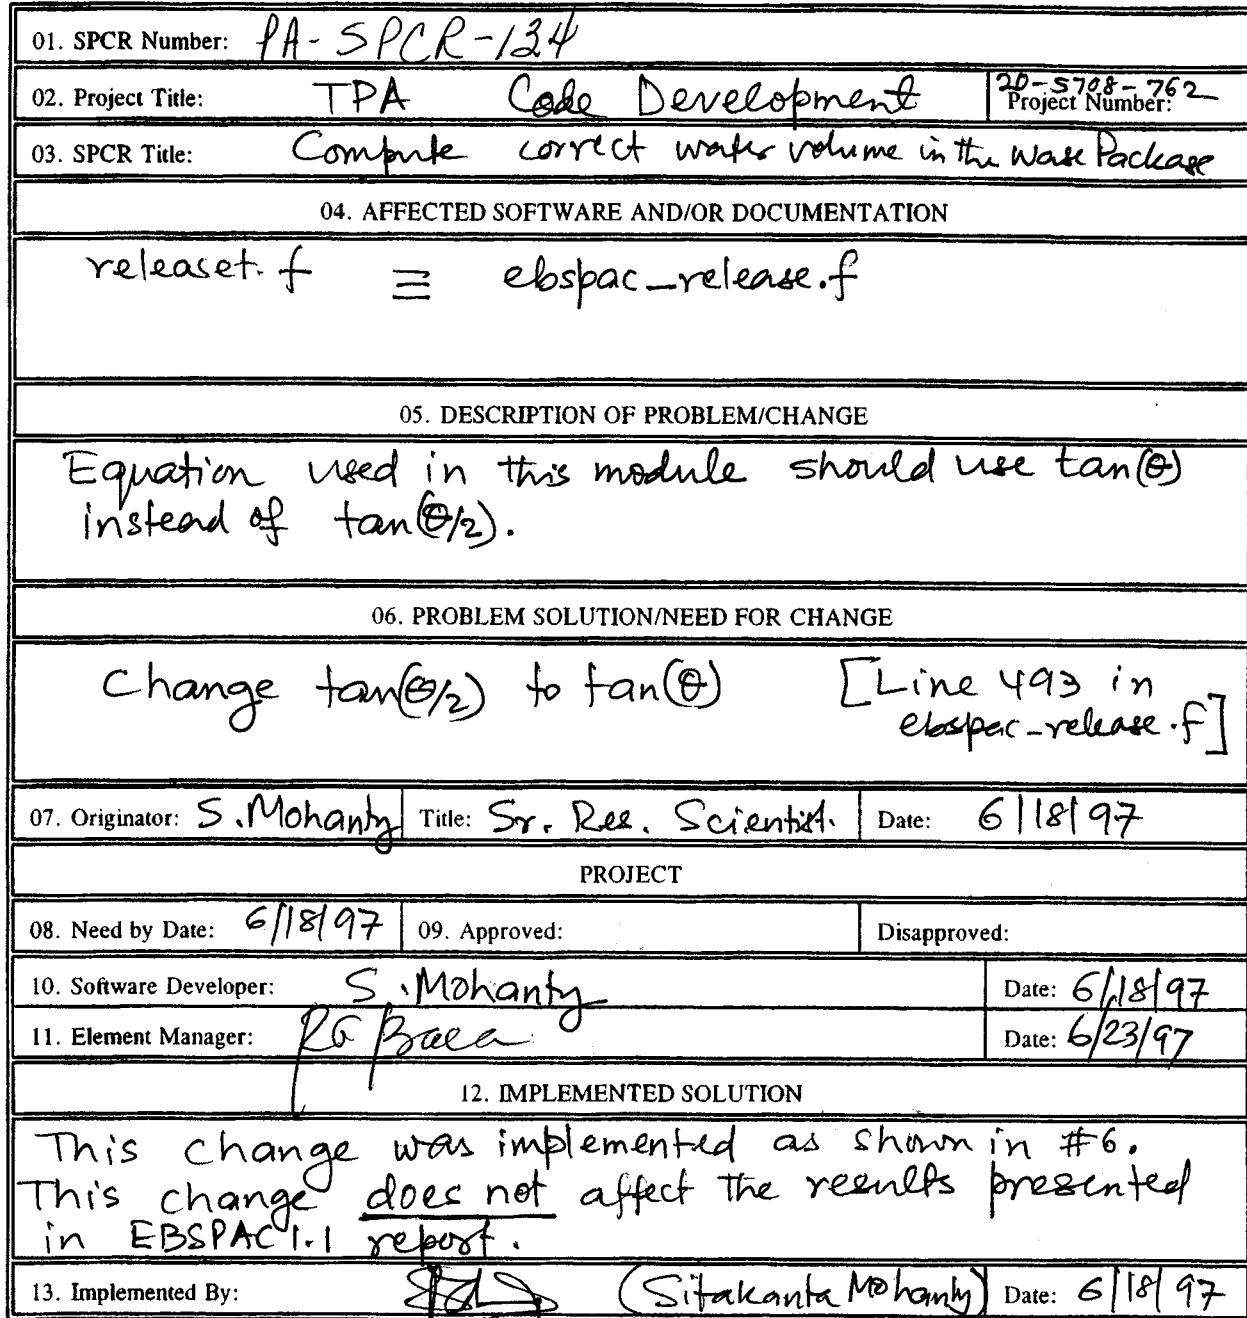 01. SPCR Number: PA-SPCR-134
02. Project Title: TPA Code Development 20-5708-762 Project Number:
03. SPCR Title: Compute correct water volume in the Wase Package
04. AFFECTED SOFTWARE AND/OR DOCUMENTATION
releaset.f ≡ ebspac_release.f
05. DESCRIPTION OF PROBLEM/CHANGE
Equation used in this module should use tan(θ)
instead of tan(θ/2).
06. PROBLEM SOLUTION/NEED FOR CHANGE
Change tan(θ/2) to tan(θ) [Line 493 in
ebspac-release.f]
07. Originator: S. Mohanty Title: Sr. Res. Scientist. Date: 6/18/97
PROJECT
08. Need by Date: 6/18/97 09. Approved: Disapproved:
10. Software Developer: S. Mohanty Date: 6/18/97
11. Element Manager: RG Baca Date: 6/23/97
12. IMPLEMENTED SOLUTION
This change was implemented as shown in #6.
This change does not affect the results presented
in EBSPAC 1.1 report.
13. Implemented By: (Sitakanta Mohanty) Date: 6/18/97